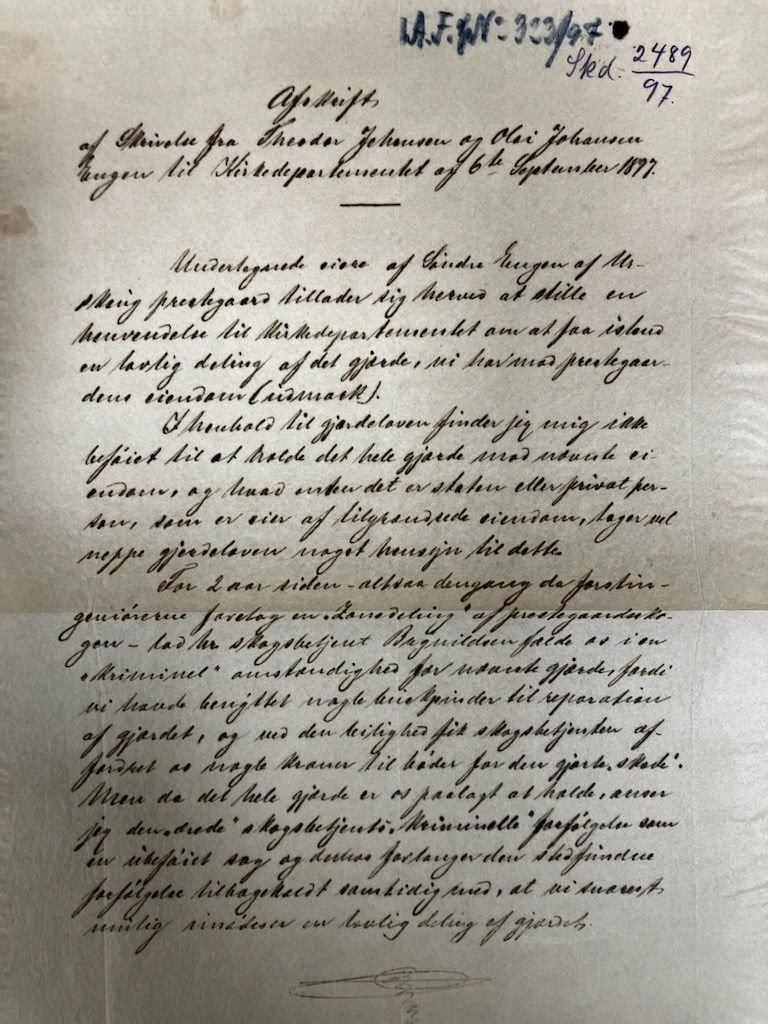 A.F. J.No 323/97
Skd. 2489
97.
Afskrift
af Skrivelse fra Theodor Johansen og Olai Johansen
Engen til Kirkedepartementet af 6te September 1897.
Undertegnede eiere af Søndre Engen af Ur-
skoug prestegaard tillader sig herved at stille en
henvendelse til Kirkedepartementet om at faa istand
en lovlig deling af det gjærde, vi har mod prestegaar-
dens eiendom (udmark).
I henhold til gjærdeloven finder jeg mig ikke
beføiet til at holde det hele gjærde mod nævnte ei-
endom, og hvad enten det er staten eller privat per-
son, som er eier af tilgrændsede eiendom, tager vel
neppe gjerdeloven noget hensyn til dette.
For 2 aar siden - altsaa dengang da forstin-
geniørerne foretog en "Zonedeling" af prestegaardssko-
gen - lod hr skogbetjent Bagnildsen falde os i en
"kriminel" omstændighed for nævnte gjærde, fordi
vi havde benyttet nogle birkpinder til reparation
af gjærdet, og ved den leilighed fik skogsbetjenten af-
fordret os nogle kroner til bøder for den gjorte "skade".
Men da det hele gjærde er os paalagt at holde, anser
jeg den "ærede" skogsbetjents "kriminelle" forfølgelse som
en ubeføiet sag og derhos forlanger den stedfundne
forfølgelse tilbagekaldt samtidig med, at vi snarest
mulig imødeser en lovlig deling af gjærdet.